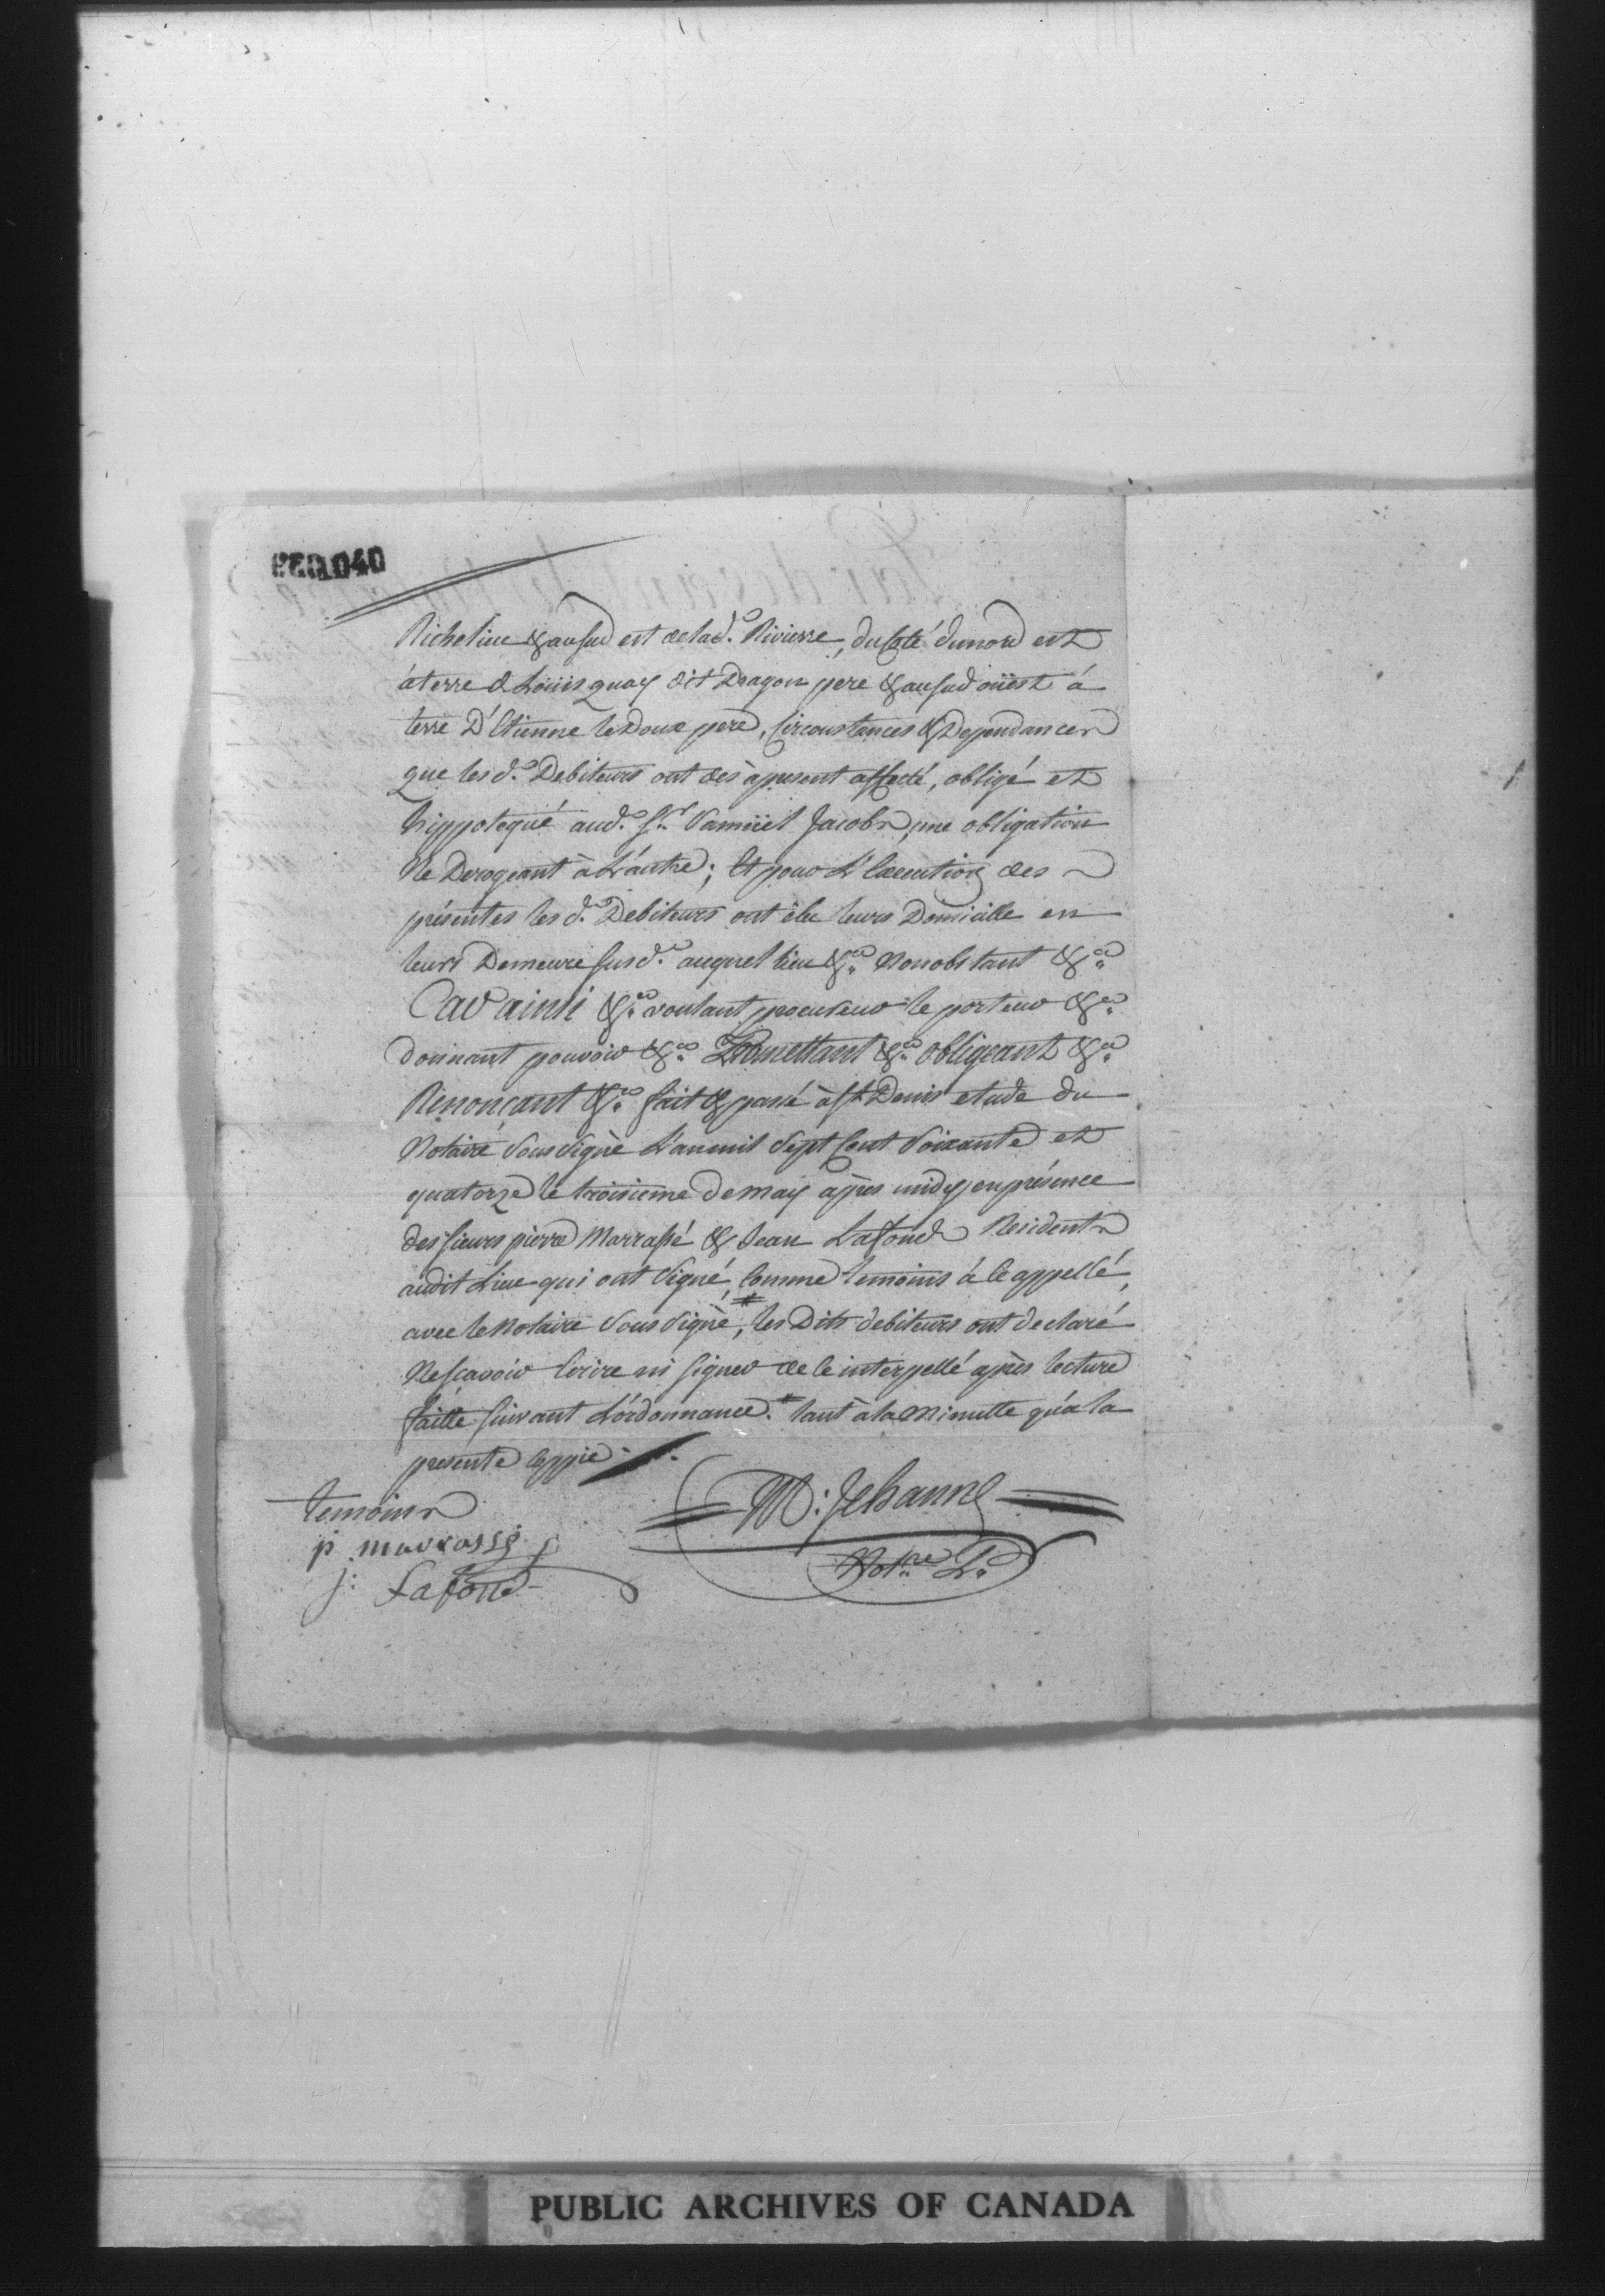 Richelieu & au sud est de lad.e Rivierre, du Coté du nord est
á terre de Loüis quay dit Dragon pere & au sud oüest á
terre D'Etienne le Doux pere, Circonstances & Dependances
que les d.s Debiteurs ont dès a present affecté, obligé et
hippotequé aud. Sr. Samüel Jacobs, une obligation
Ne Derogeant à L'autre; Et pour L'Execution des
présentes les d.s Debiteurs ont èlu leurs Domicille en
leurs Demeure susd.e auquel lieu &a. Nonobstant &a.
Car ainsi &a. voulant procureur le porteur &a.
donnant pouvoir &a. Promettant &a. obligeant &a.
Renonçant &a. fait & passé à St. Denis etude du
Notaire Soussignè L'an mil Sept Cent Soixante et
quatorze le troisieme de may après midy en présence
des sieurs pierre Marrassé & Jean Lafond Residents
audit Lieu qui ont Signé, Comme temoins á Ce appellé,
avec le Notaire Soussignè, # les Dits debiteurs ont declaré
Ne scavoir Ecrire ni signer de Ce interpellé après lecture
faitte suivant L'ordonnance. # tant à la Minutte qu'a la
presente Coppie
Temoins
p. marrassé
j: Lafond
M: Jehanne
Not.re
REQ 1040
PUBLIC ARCHIVES OF CANADA